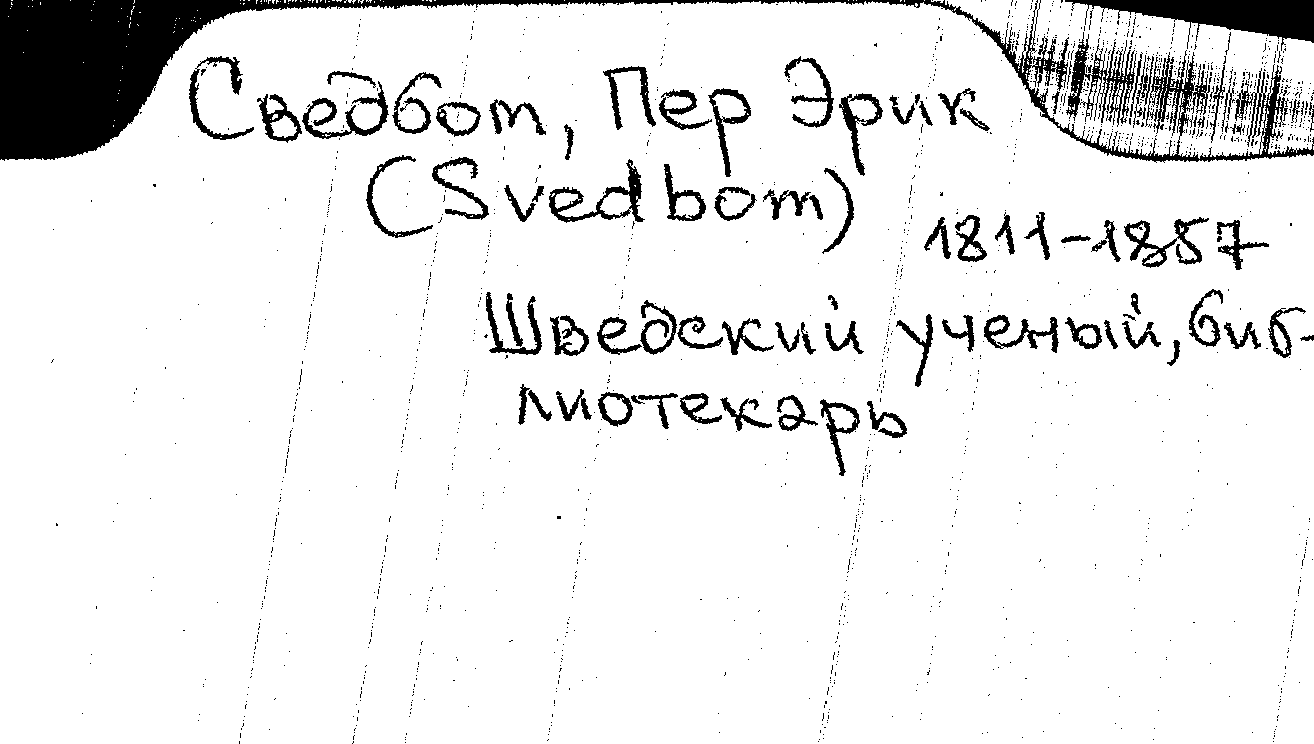 Сведбот, Пер Эрик
(Svedbom)
1811-1857
Шведский ученый, биб-
лиотекарь